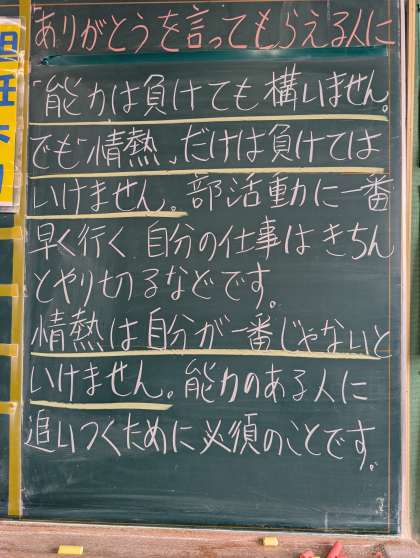 ありがとうを言ってもらえる人に
「能力は負けても構いません。
でも「情熱」だけは負けては
いけません。部活動に一番
早く行く、自分の仕事はきちん
とやり切るなどです。
情熱は自分が一番じゃないと
いけません。能力のある人に
追いつくために必須のことです。